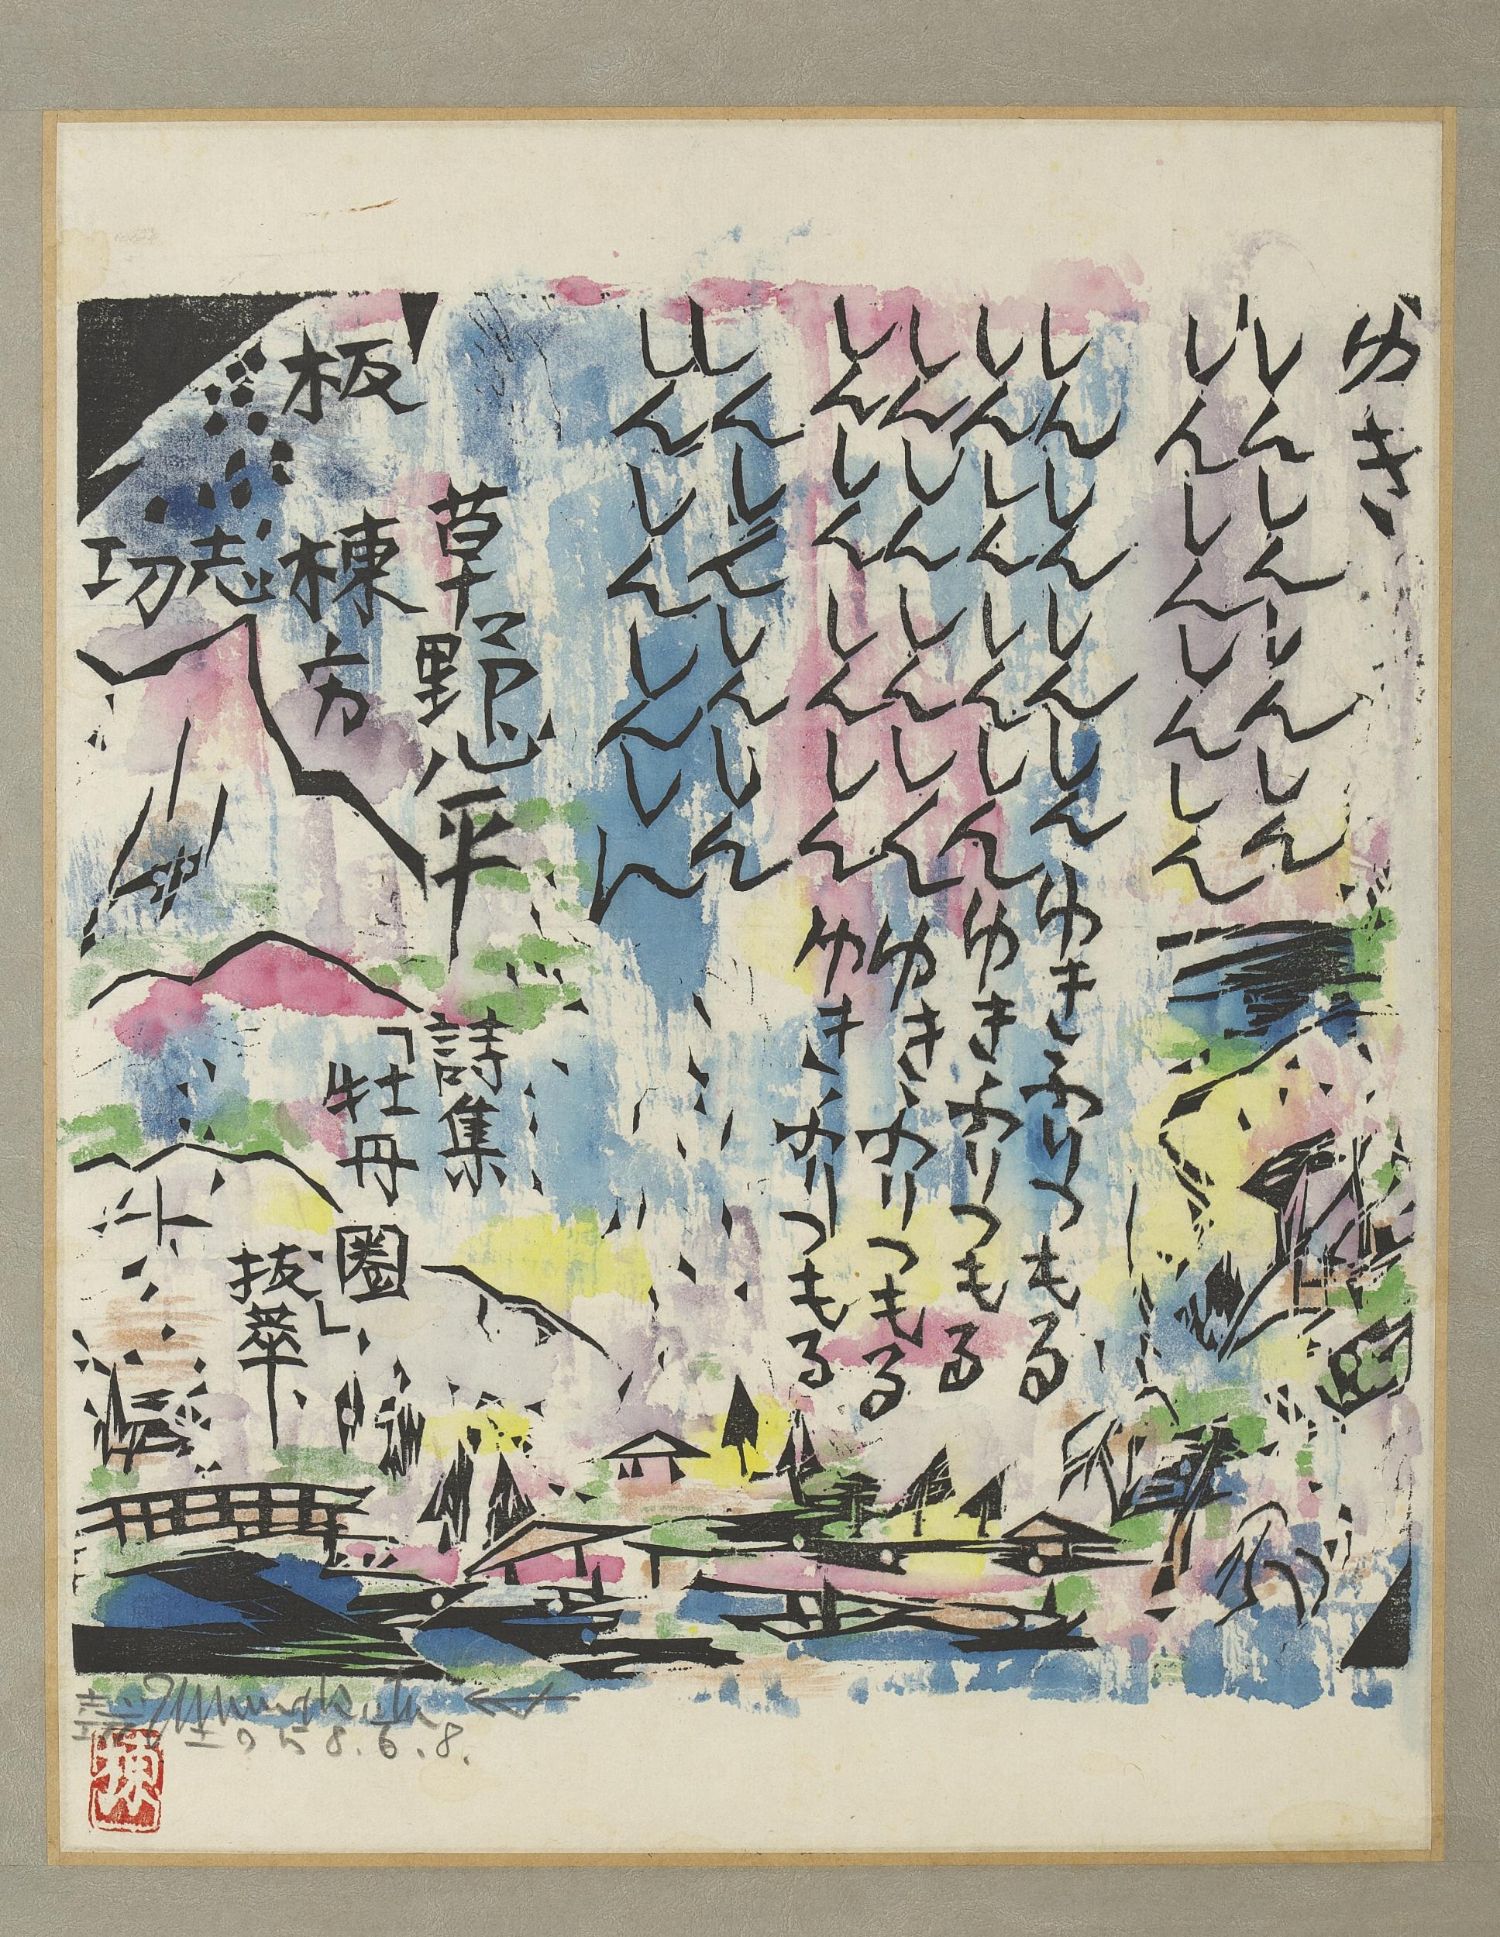 ゆき
しんしんしんしん
しんしんしんしん
しんしんしんしんゆきふりつもる
しんしんしんしんゆきふりつもる
しんしんしんしんゆきふりつもる
しんしんしんしんゆきふりつもる
しんしんしんしん
しんしんしんしん
草野心平 詩集
「牡丹圏」
抜萃、
板 棟方
志
功
Munakata
1958.6.8.
棟